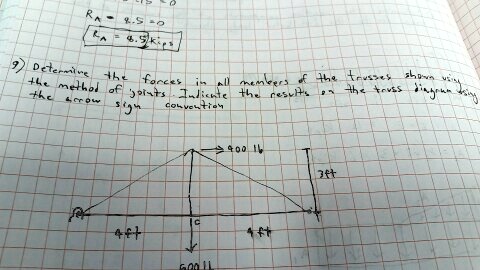 R_A - 8.5 = 0
R_A = 8.5 kips
9) Determine the forces in all members of the trusses shown using
the method of joints. Indicate the results on the truss diagram using
the arrow sign convention
400 lb
3ft
C
4ft
4 ft